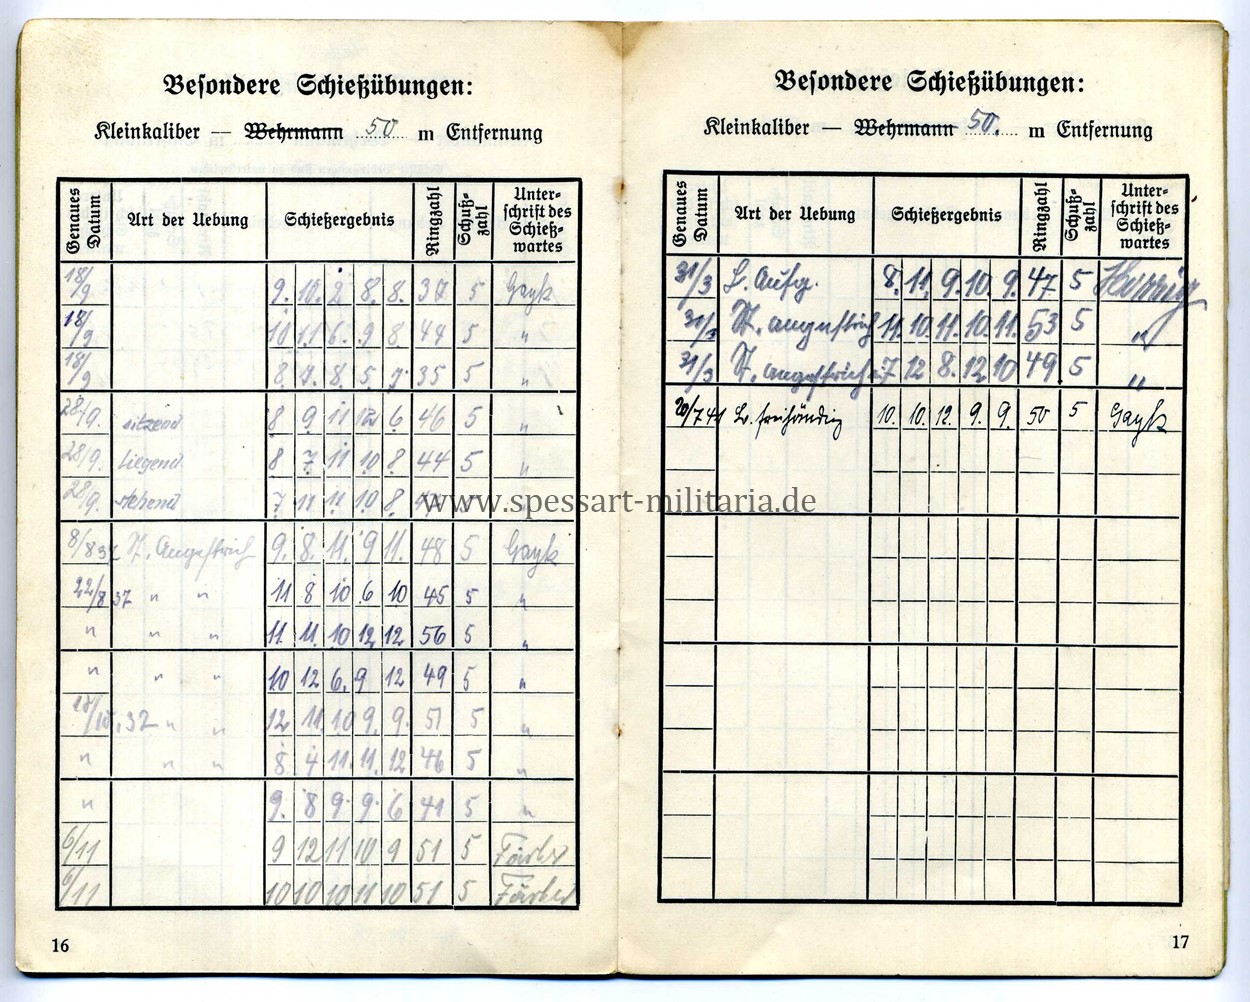 Besondere Schießübungen:
Kleinkaliber — Wehrmann 50 m Entfernung
Genaues Datum Art der Uebung Schießergebnis Ringzahl Schuß-zahl Unter-schrift des Schieß-wartes
18/9 9. 10. 2 8. 8. 37 5 Gayk
18/9 10 11 6. 9 8 44 5 "
18/9 8. 7. 8. 5 7 35 5 "
28/9. sitzend 8 9 11 12 6 46 5 "
28/9. liegend 8 7 11 10 8 44 5 "
28/9. stehend 7 11 11 10 8 47
8/8 37 St. Angestrich 9. 8. 11. 9 11. 48 5 Gayk
22/8 37 " " 11 8 10 6 10 45 5 "
" " " 11. 11. 10 12 12 56 5 "
" " " 10 12 6. 9 12 49 5 "
17/10.37 " " 12 11 10 9. 9. 51 5 "
" " " 8 4 11. 11. 12 46 5 "
" 9. 8 9. 9. 6 41 5 "
6/11 9 12 11 10 9 51 5 Färber
6/11 10 10 10 11 10 51 5 Färber
16
Besondere Schießübungen:
Kleinkaliber — Wehrmann 50. m Entfernung
Genaues Datum Art der Uebung Schießergebnis Ringzahl Schuß-zahl Unter-schrift des Schieß-wartes
31/3 L. Aufg. 8. 11. 9. 10. 9. 47 5
31/3 St. angestrich 11. 10. 11. 10. 11. 53 5 "
31/3 St. angestrich 7 12 8. 12 10 49 5 "
20/7 41 L. freihändig 10. 10. 12. 9. 9. 50 5 Gayk
17
www.spessart-militaria.de